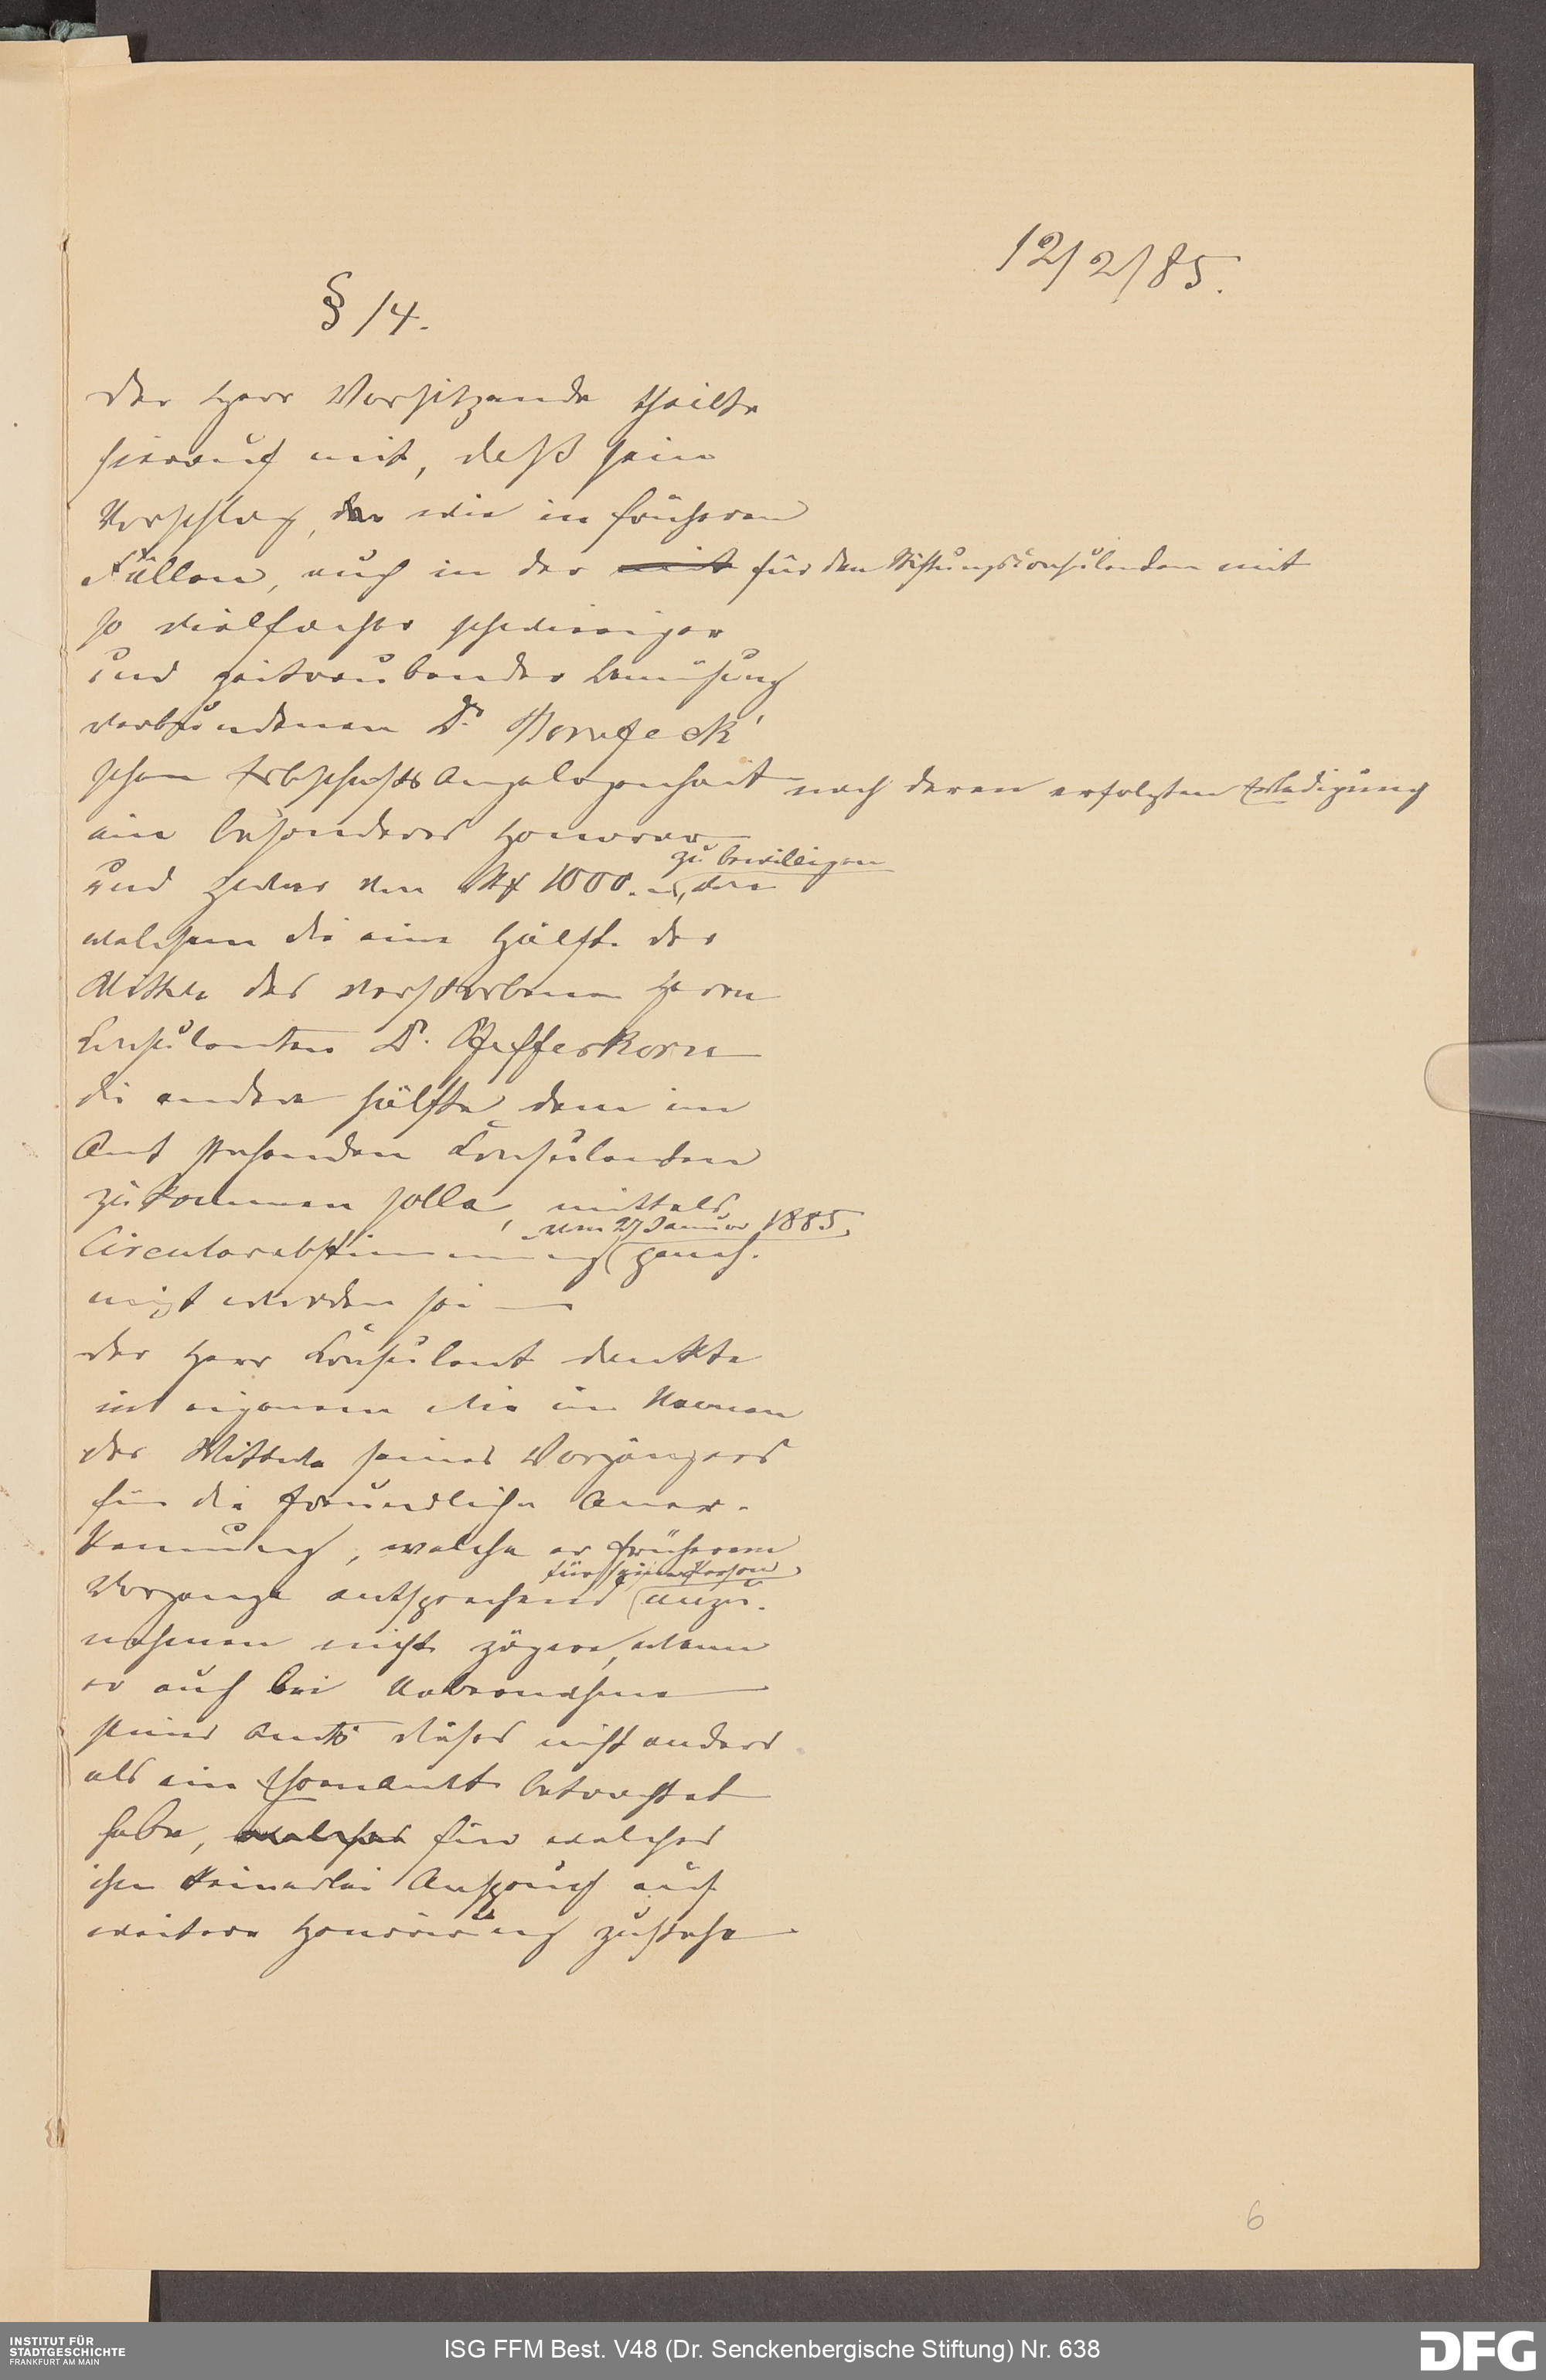 12/2/85.
§ 14.
Der Herr Vorsitzende theilte
hierauf mit, daß sein
Vorschlag, wie in früheren
Fällen, auch in der mit für den Stiftungsconsulenten mit
so vielfacher schwieriger
und zeitraubender Bemühung
verbundenen Dr.
schen Erbschafts Angelegenheit nach deren erfolgten Erledigung
ein besonderes Honorar
und zwar von M 1000. zu bewilligen, von
welchem die eine Hälfte der
Wittwe des verstorbenen Herrn
Consulenten Dr. Pfefferkorn
die andere Hälfte dem im
Amt stehenden Consulenten
zukommen solle, mittels
Circularabstimmung vom 27 Januar 1885 geneh-
migt worden sei —
Der Herr Consulent dankte
im eigenem wie im Namen
der Wittwe seines Vorgängers
für die freundliche Aner-
kennung, welche er früherem
Vorgange entsprechend für seine Person anzu-
nehmen nicht zögere, wenn
er auch bei Uebernahme
seines Amts dieses nicht anders
als ein Ehrenamt betrachtet
habe, welches für welches
ihm keinerlei Anspruch auf
weitere Honorirung zustehe
6
INSTITUT FÜR
STADTGESCHICHTE
FRANKFURT AM MAIN
ISG FFM Best. V48 (Dr. Senckenbergische Stiftung) Nr. 638
DFG